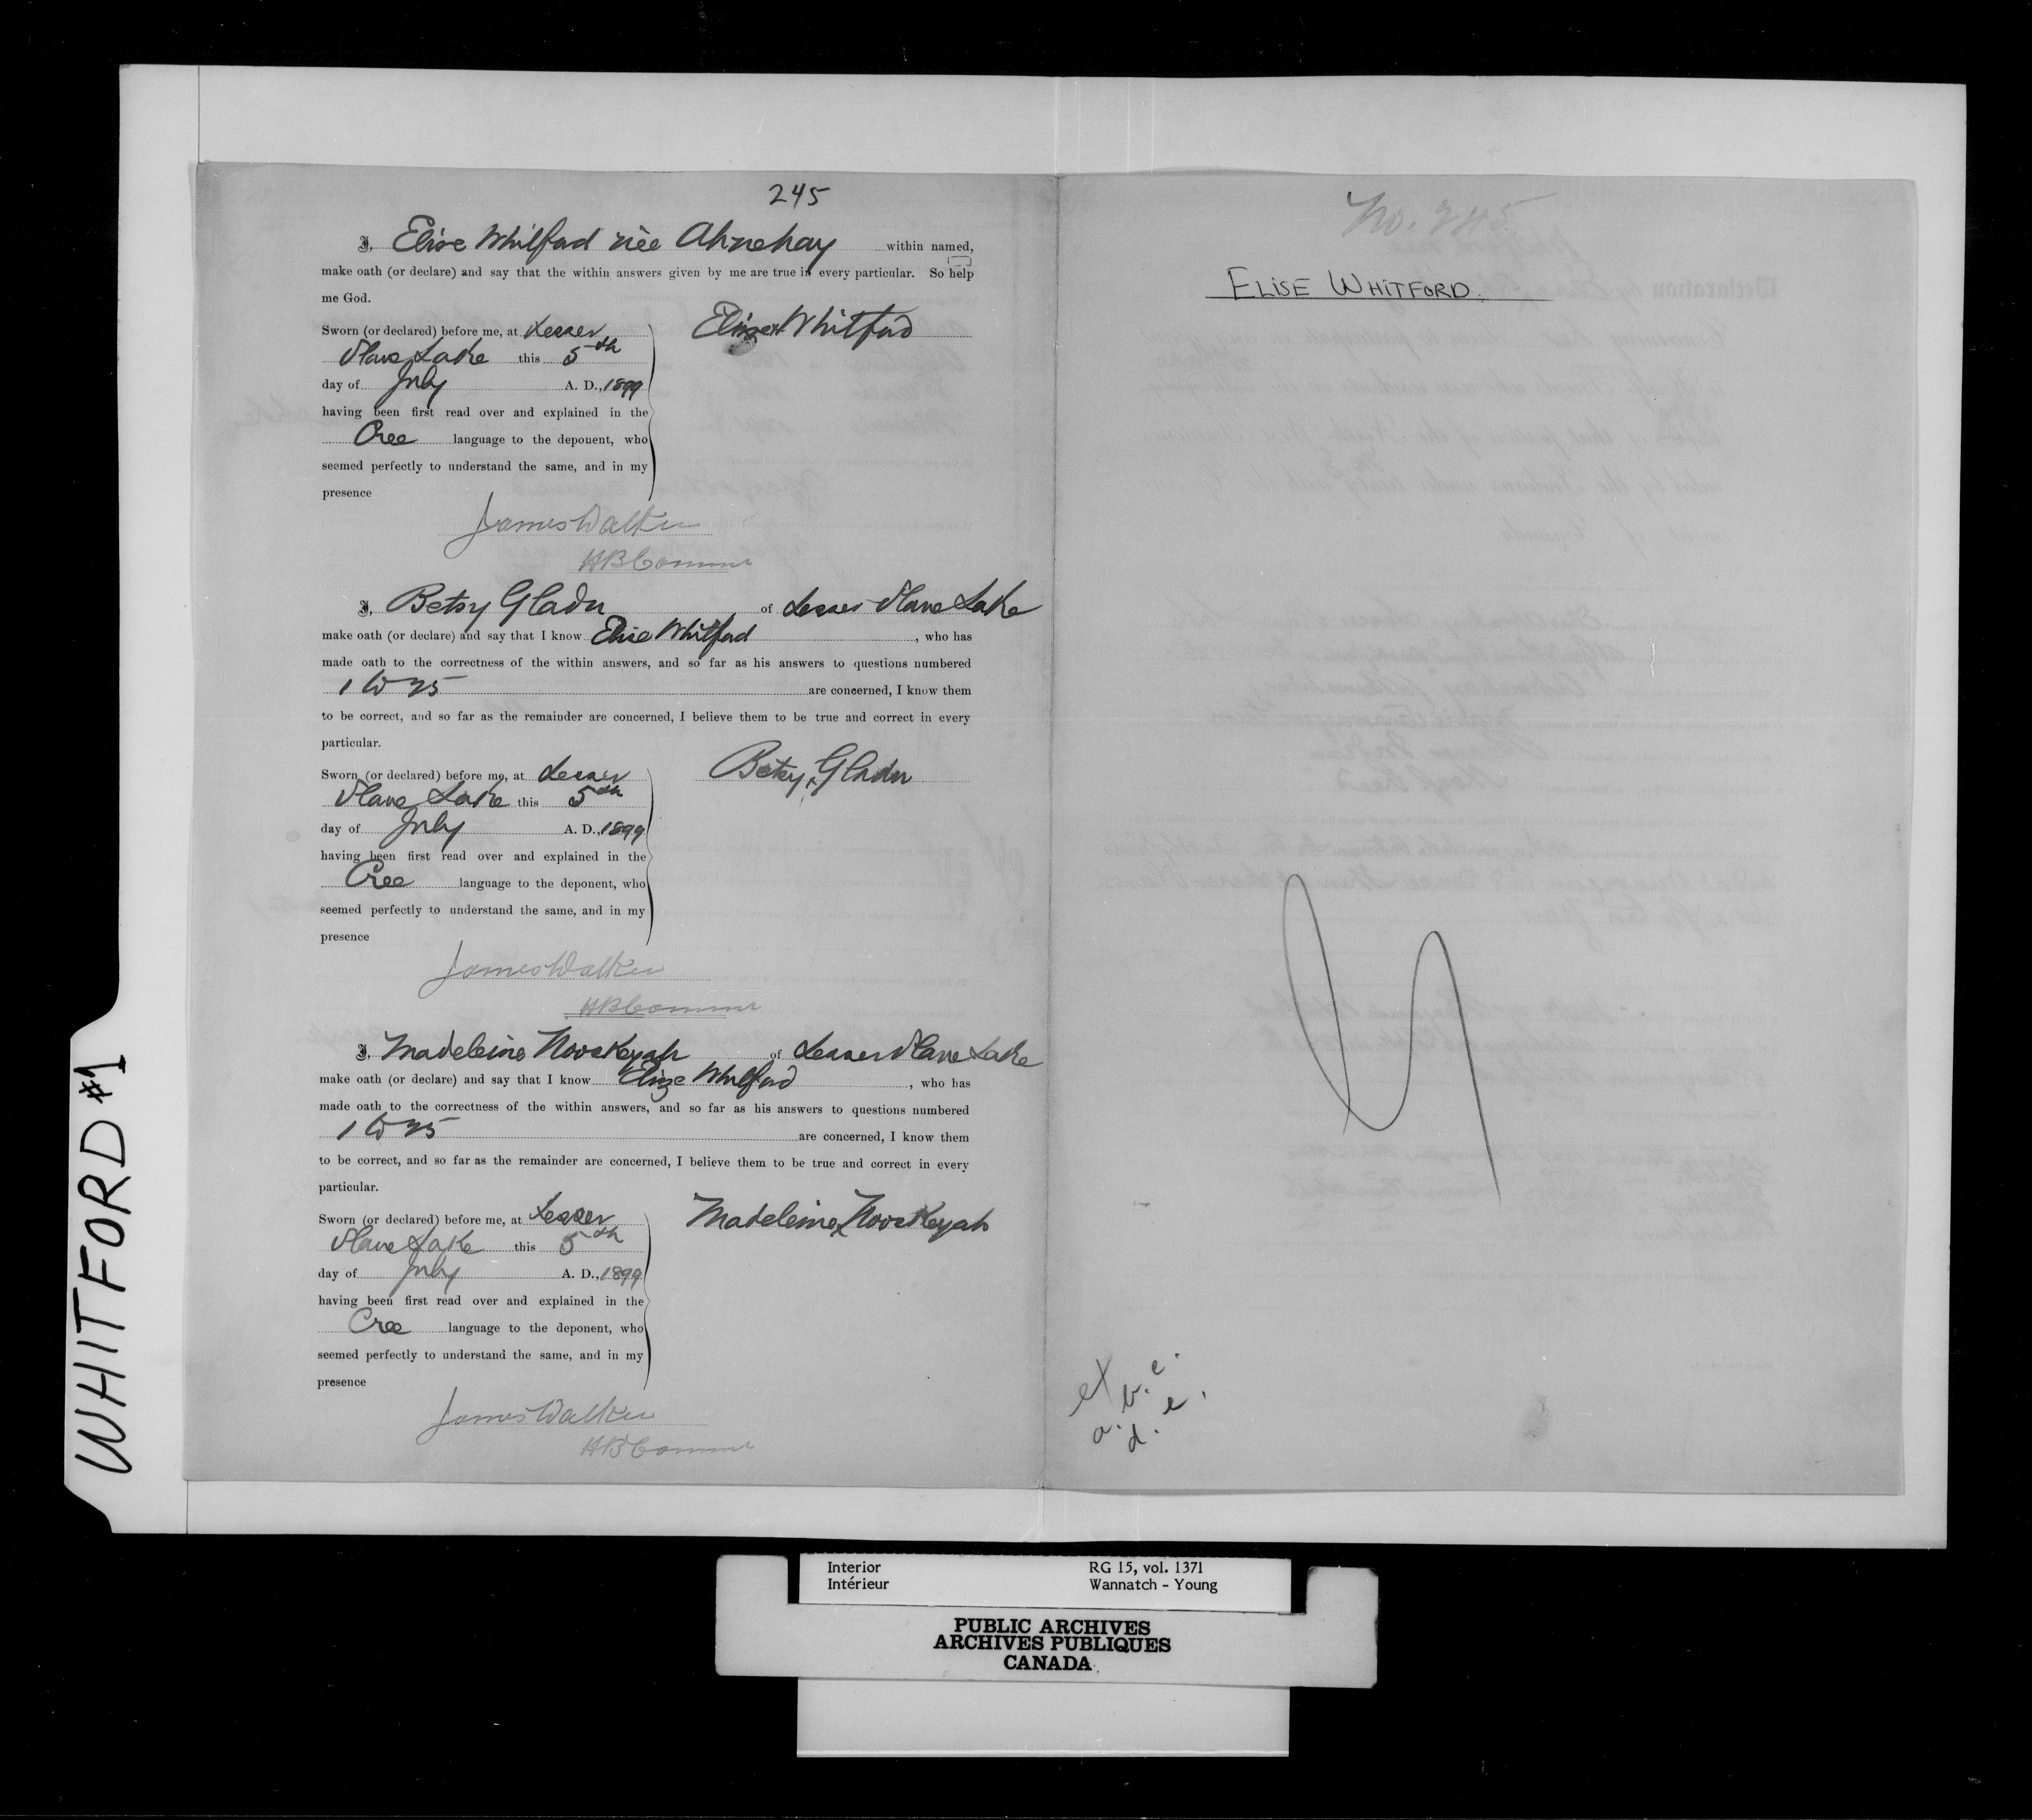 WHITFORD #1
245
I, Elise Whitford née Ahnehay within named,
make oath (or declare) and say that the within answers given by me are true in every particular. So help
me God.
Sworn (or declared) before me, at Lesser
Slave Lake this 5th
day of July A. D., 1899
having been first read over and explained in the
Cree language to the deponent, who
seemed perfectly to understand the same, and in my
presence
Elise x Whitford
James Walker
HB Commr
I, Betsy Gladu of Lesser Slave Lake
make oath (or declare) and say that I know Elise Whitford, who has
made oath to the correctness of the within answers, and so far as his answers to questions numbered
1 to 25 are concerned, I know them
to be correct, and so far as the remainder are concerned, I believe them to be true and correct in every
particular.
Sworn (or declared) before me, at Lesser
Slave Lake this 5th
day of July A. D., 1899
having been first read over and explained in the
Cree language to the deponent, who
seemed perfectly to understand the same, and in my
presence
Betsy x Gladu
James Walker
HB Commr
I, Madeleine Nooskeyah of Lesser Slave Lake
make oath (or declare) and say that I know Elize Whitford, who has
made oath to the correctness of the within answers, and so far as his answers to questions numbered
1 to 25 are concerned, I know them
to be correct, and so far as the remainder are concerned, I believe them to be true and correct in every
particular.
Sworn (or declared) before me, at Lesser
Slave Lake this 5th
day of July A. D., 1899
having been first read over and explained in the
Cree language to the deponent, who
seemed perfectly to understand the same, and in my
presence
Madeleine x Nooskeyah
James Walker
HB Commr
No. 245
ELISE WHITFORD.
ex b. c.
a. d. e.
Interior RG 15, vol. 1371
Intérieur Wannatch - Young
PUBLIC ARCHIVES
ARCHIVES PUBLIQUES
CANADA